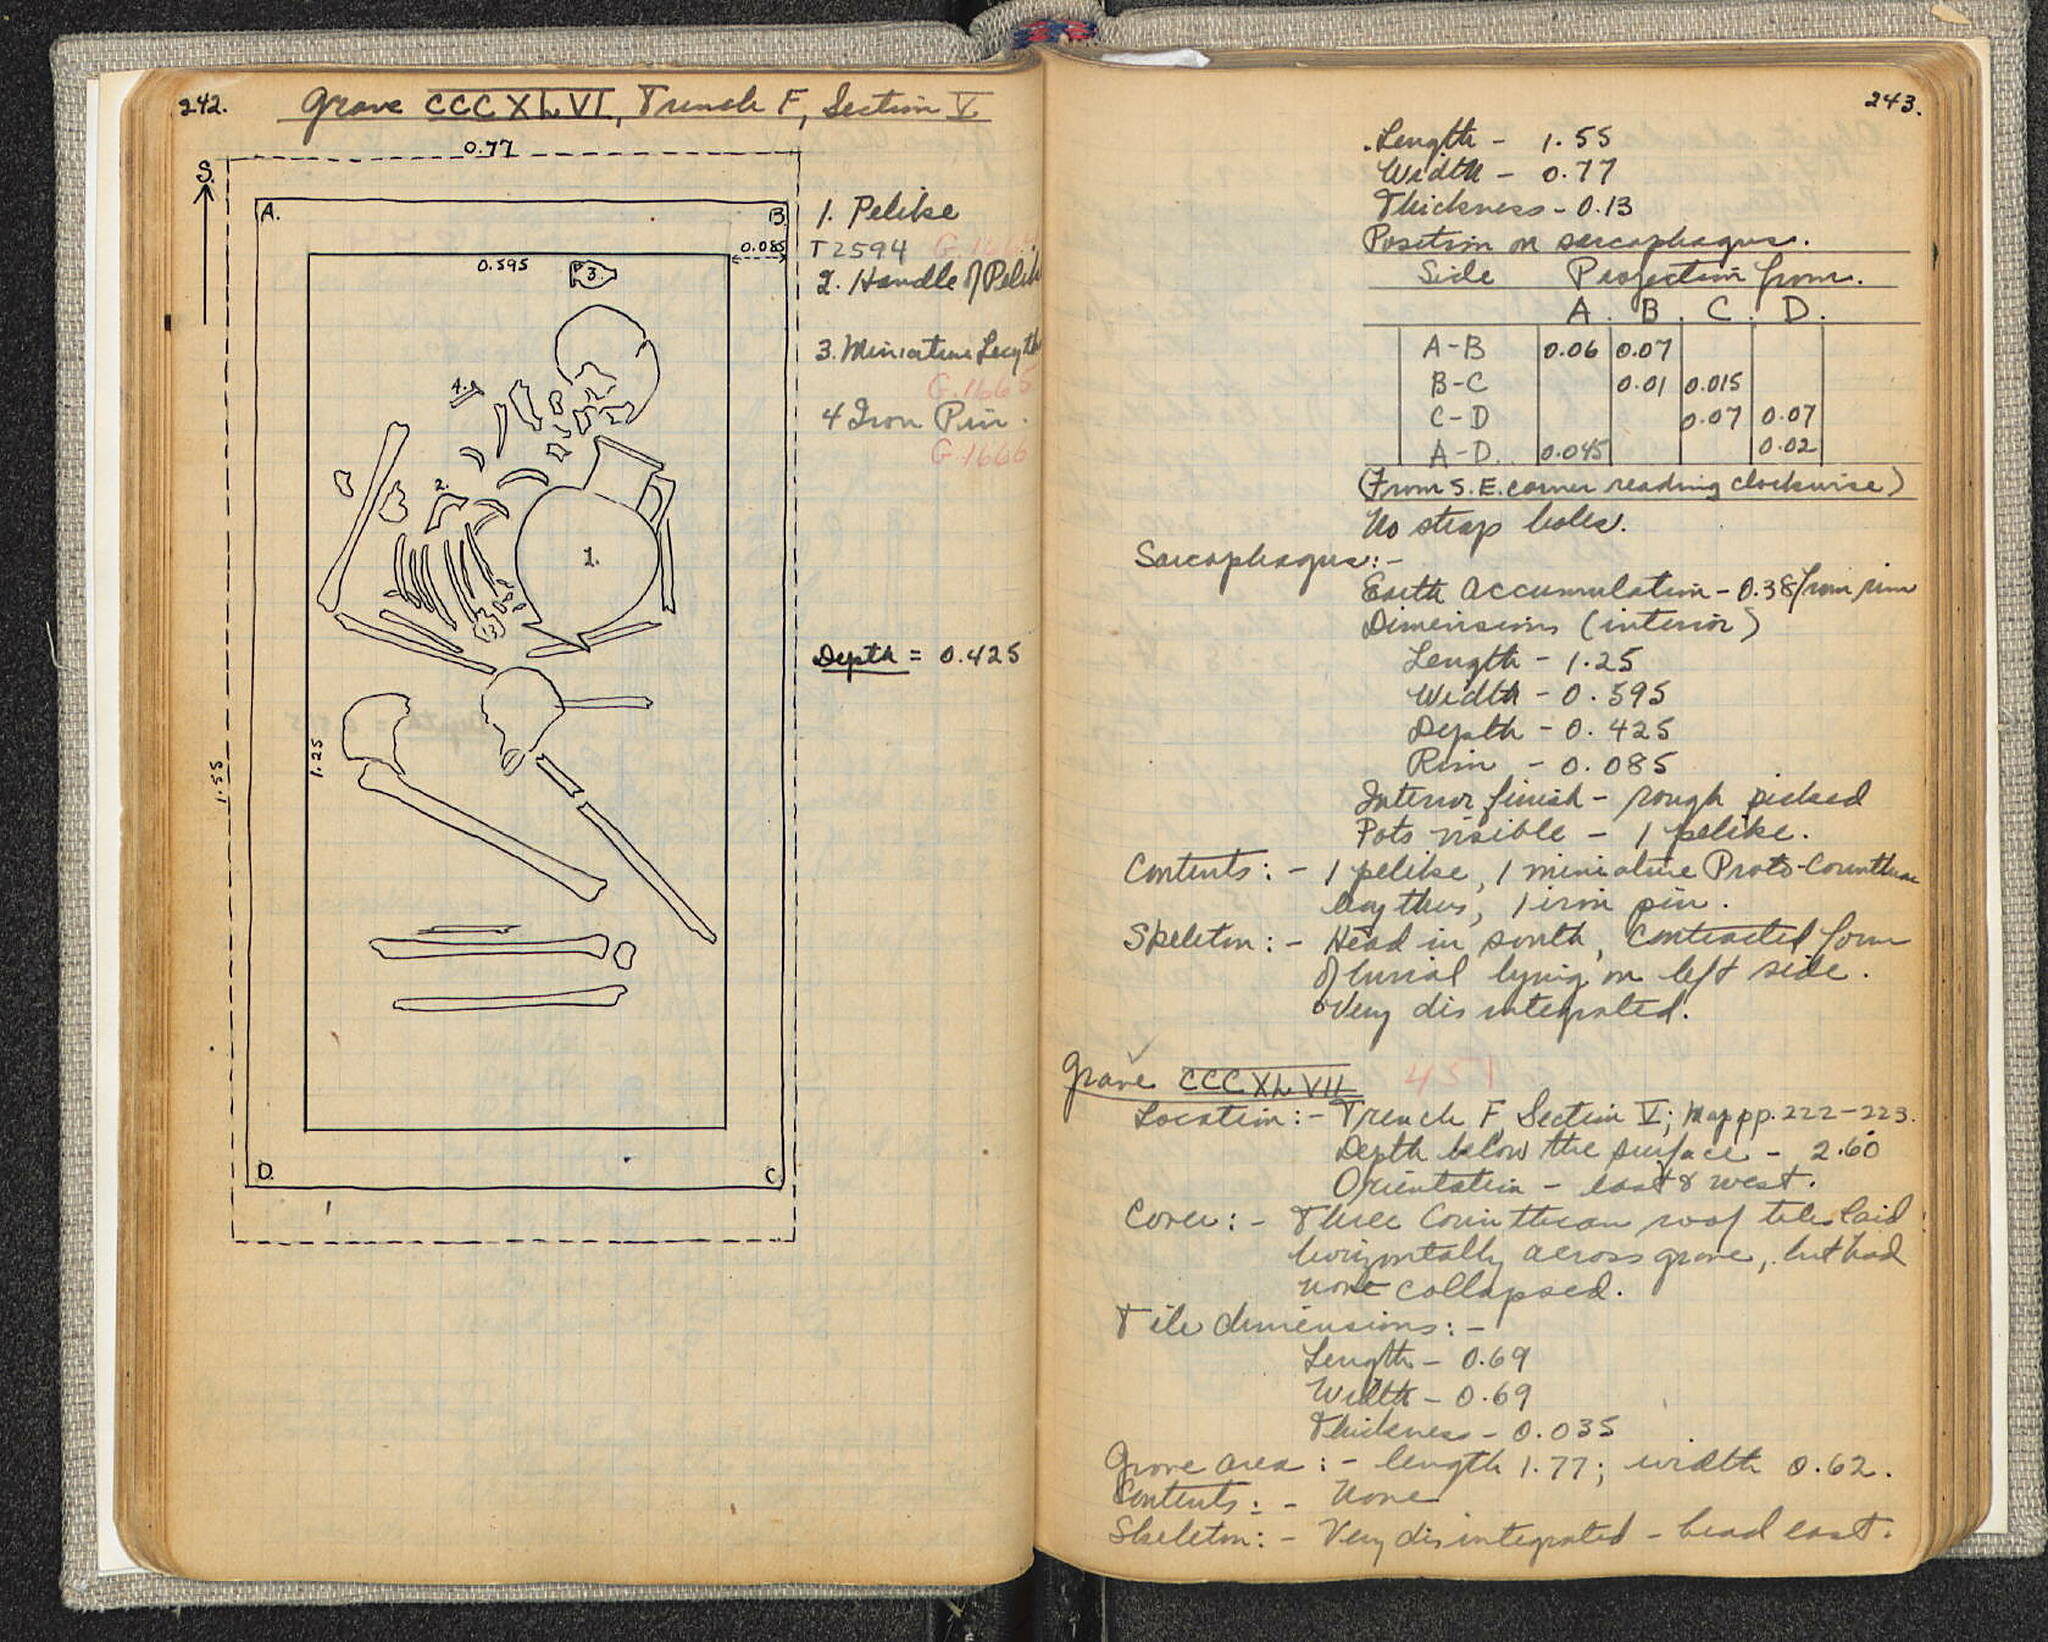 242.
Grave CCCXLVI, Trench F, Section V.
0.77
S.
A.
B.
0.085
0.595
3.
4.
2.
1.
1.25
1.55
D.
C.
1. Pelike
T2594 G.1664
2. Handle of Pelik
3. Miniature Lecyth
G.1665
4 Iron Pin.
G.1666
Depth = 0.425
243.
Length - 1.55
Width - 0.77
Thickness - 0.13
Position on sarcophagus.
Side Projection from.
A. B. C. D.
A-B 0.06 0.07
B-C 0.01 0.015
C-D 0.07 0.07
A-D. 0.045 0.02
(From S.E. corner reading clockwise)
No strap holes.
Sarcophagus:-
Earth Accumulation - 0.38 from rim
Dimensions (interior)
Length - 1.25
Width - 0.595
Depth - 0.425
Rim - 0.085
Interior finish - rough picked
Pots visible - 1 pelike.
Contents: - 1 pelike, 1 miniature Proto-Corinthian
lecythus, 1 iron pin.
Skeleton: - Head in south, contracted form
of burial lying on left side.
Very disintegrated.
Grave CCCXLVII 451
Location: - Trench F, Section V; Map pp. 222-223.
Depth below the surface - 2.60
Orientation - east & west.
Cover: - Three Corinthian roof tiles laid
horizontally across grave, but had
none collapsed.
Tile dimensions: -
Length - 0.69
Width - 0.69
Thickness - 0.035
Grave area: - length 1.77; width 0.62.
Contents: - None
Skeleton: - Very disintegrated - head east.